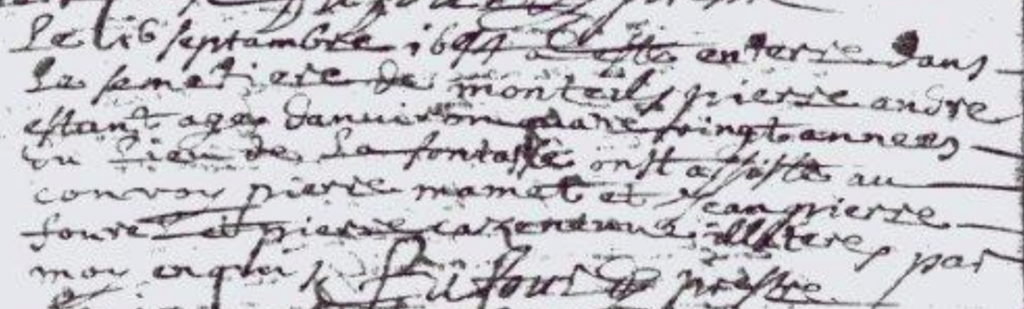 Le 16 septambre 1694 a este enterre dans
le semetiere de monteils pierre andre
estant age danviron quatre vingt annees
du lieu de la fontasse onst assiste au
convoy pierre mamet et Jean pierre
foure et pierre illiteres par
moy
prestre